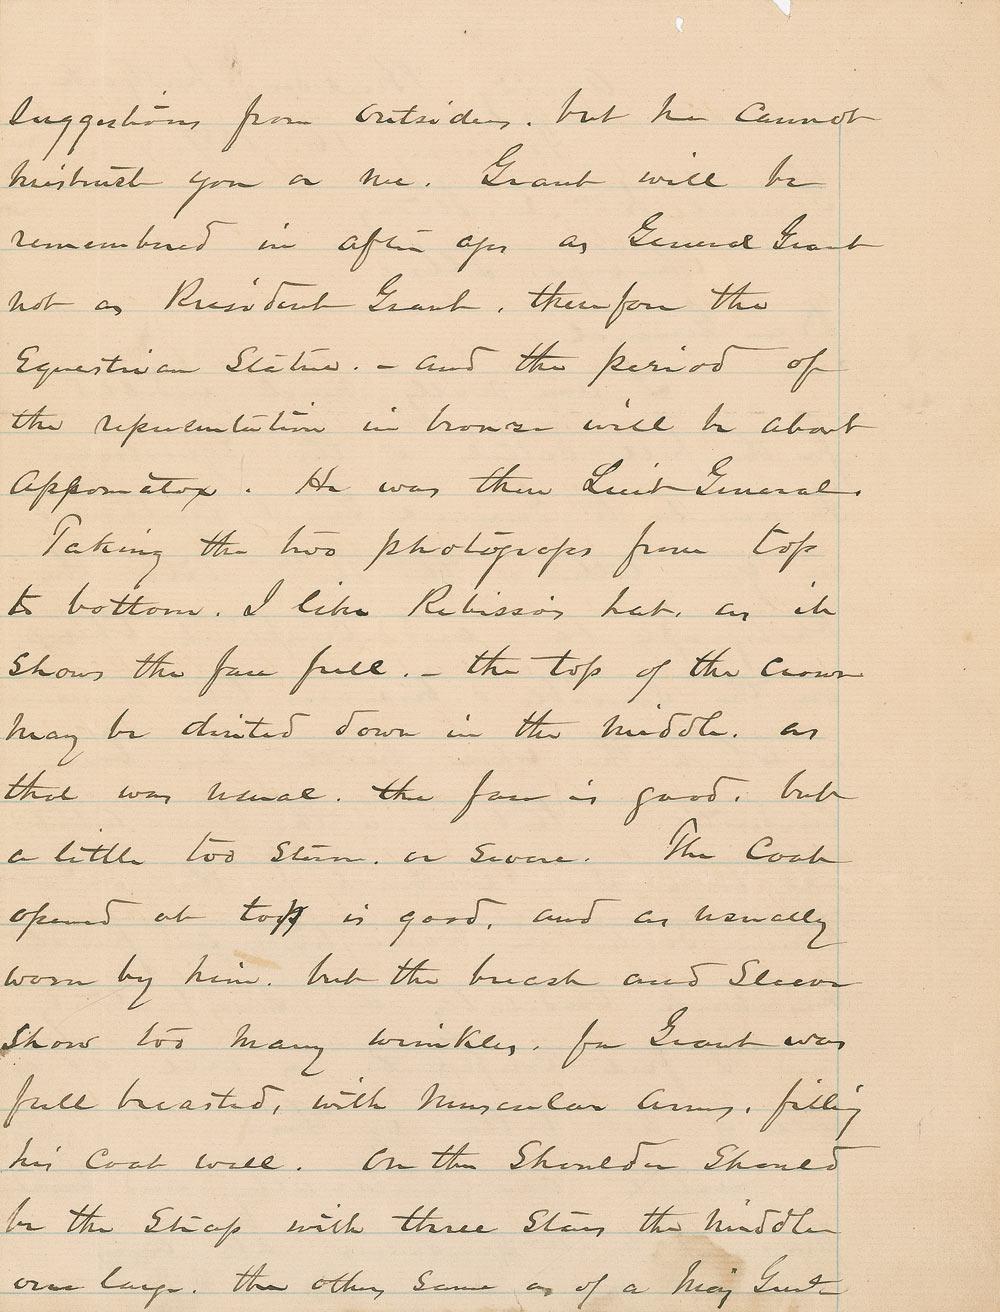 suggestions from outsiders. but he cannot
mistrust you or me. Grant will be
remembered in after ages as General Grant
not as President Grant, therefore the
Equestrian Statue. - and the period of
the representation in bronze will be about
Appomatox. He was then Lieut General.
Taking the two photograps from top
to bottom. I like Rebisso's hat. as it
shows the face full. - the top of the crown
may be dinted down in the middle. as
that was usual. the face is good. but
a little too stern. or severe. The Coat
opened at top is good, and as usually
worn by him. but the breast and Sleeve
show too many wrinkles. for Grant was
full breasted, with muscular arms. filling
his Coat well. On the Shoulder Should
be the Strap with three Stars the middle
one large. the others same as of a Maj Genl